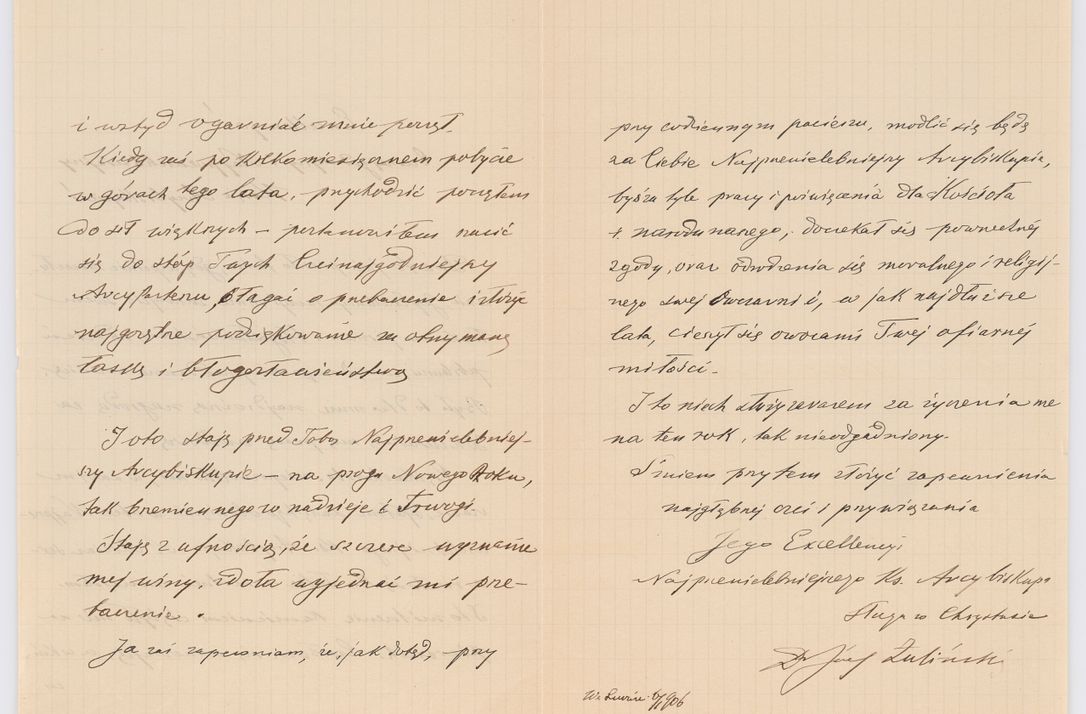 i wstyd ogarniać mnie począł.
Kiedy zaś po kilkomiesięcznem pobycie
w górach tego lata, przychodzić począłem
do sił większych – postanowiłem rzucić
się do stóp Twych Czcinajgodniejszy
Arcypasterzu, błagać o przebaczenie i złożyć
najgorętsze podziękowanie za otrzymaną
łaskę i błogosławieństwo
I oto staję przed Tobą Najprzewielebniej-
szy Arcybiskupie – na progu Nowego Roku,
tak brzemiennego w nadzieje i trwogi.
Staję z ufnością, że szczere wyznanie
mej winy, zdoła wyjednać mi prze-
baczenie.
Ja zaś zapewniam, że, jak dotąd, przy
przy codziennym pacierzu, modlić się będę
za Ciebie Najprzewielebniejszy Arcybiskupie,
byś za tyle pracy i poświęcenia dla Kościoła
i narodu naszego, doczekał się powszechnej
zgody, oraz odrodzenia się moralnego i religij-
nego swej owczarni i, w jak najdłuższe
lata, cieszył się owocami Twej ofiarnej
miłości.
I to niech starczy zarazem za życzenia me
na ten rok, tak nieodgadniony.
Śmiem przytem złożyć zapewnienia
najgłębszej czci i przywiązania
Jego Excellencyi
Najprzewielebniejszego Ks. Arcybiskupa
Sługa w Chrystusie
Dr Józef Żuliński
We Lwowie 906